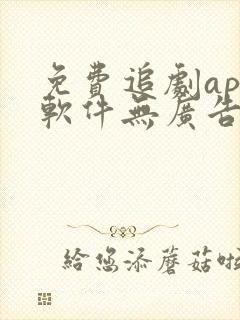 免費追劇ap
軟件無廣告
給您添蘑菇啦